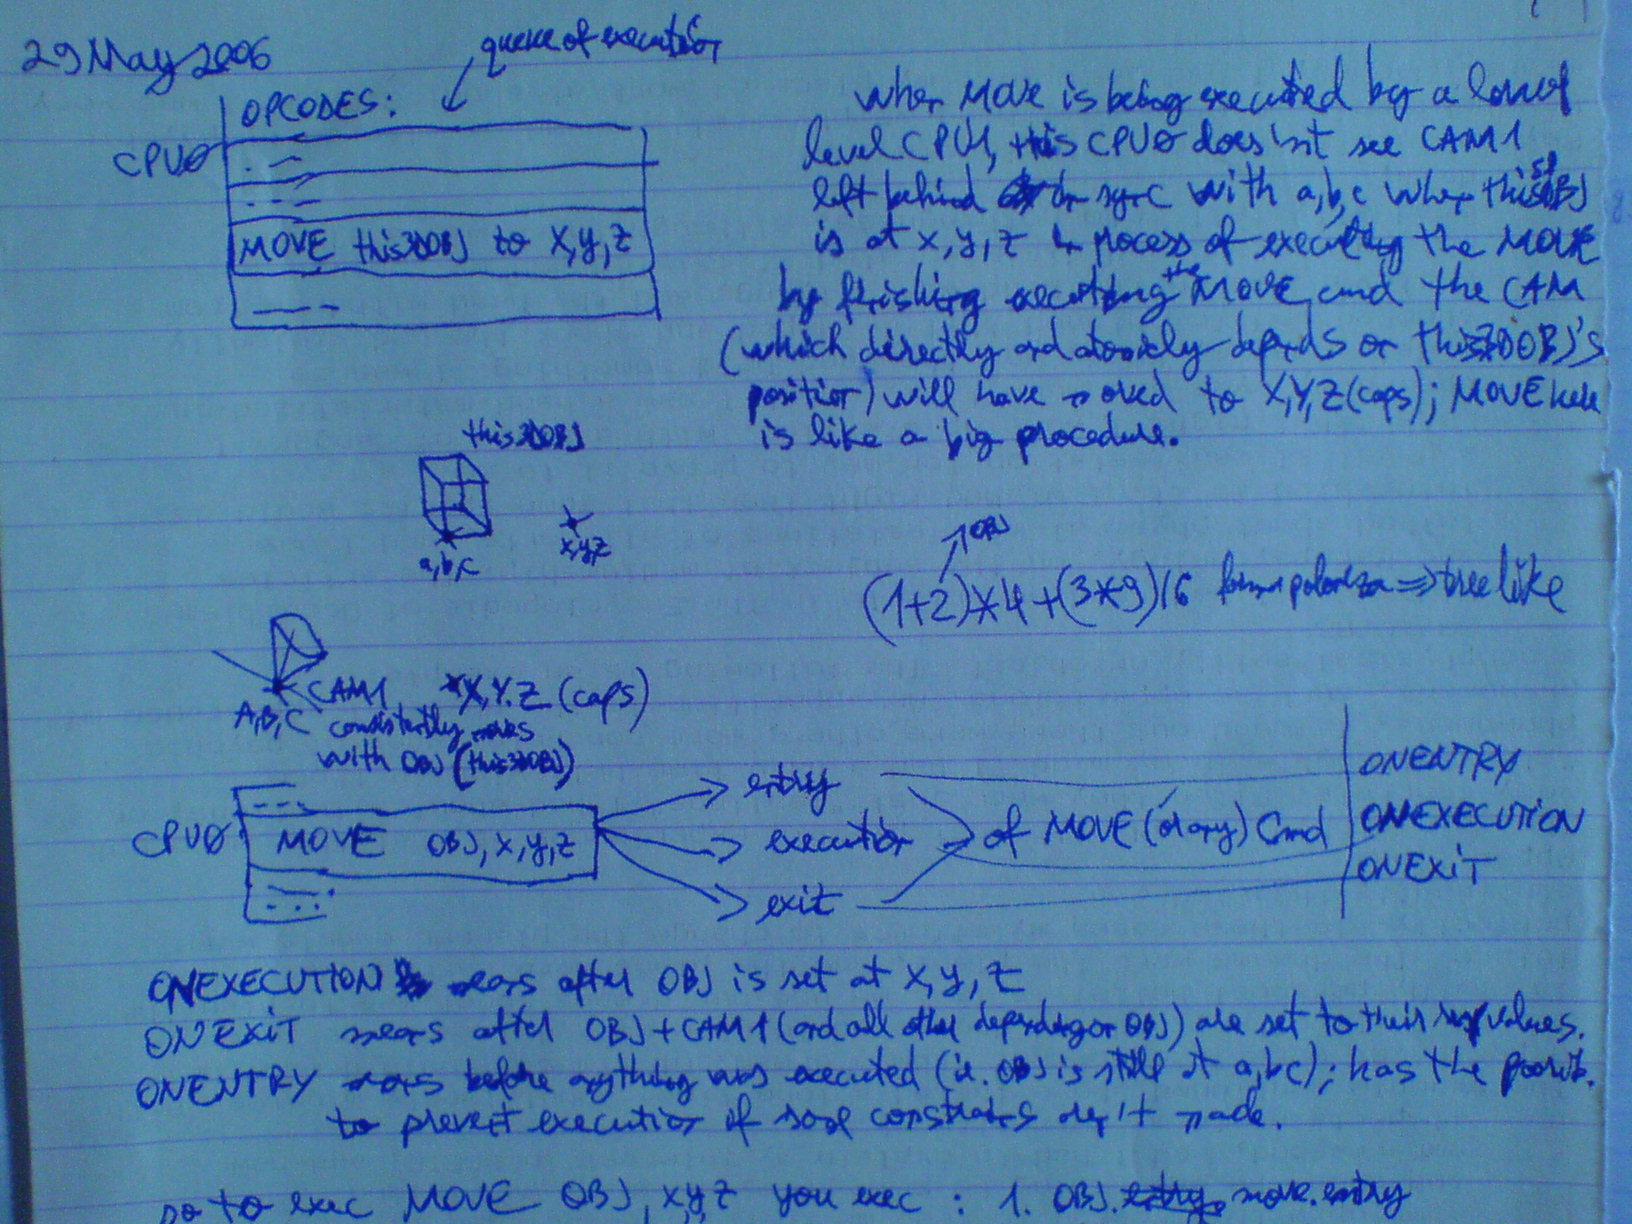 29 May 2006
queue of execution
OPCODES:
CPU0
MOVE this3DOBJ to x,y,z
when MOVE is being executed by a lower
level CPU1, this CPU0 doesn't see CAM1
left behind in sync with a,b,c when this3DOBJ
is at x,y,z in process of executing the MOVE
by finishing executing the MOVE cmd the CAM
(which directly and atomicly depends on this3DOBJ's
position) will have moved to X,Y,Z (caps); MOVE here
is like a big procedure.
this3DOBJ
a,b,c
x,y,z
OBJ
(1+2)*4+(3*9)/6 forma poloneza => tree like
CAM1
X,Y,Z (caps)
A,B,C consistently moves
with OBJ (this3DOBJ)
CPU0
MOVE OBJ, x,y,z
entry
execution
exit
of MOVE (or any) Cmd
ONENTRY
ONEXECUTION
ONEXIT
ONEXECUTION means after OBJ is set at x,y,z
ONEXIT means after OBJ+CAM1 (and all other depending on OBJ) are set to their values.
ONENTRY means before anything was executed (ie. OBJ is still at a,b,c); has the possib.
to prevent execution if some constraints aren't made.
so to exec MOVE OBJ, x,y,z you exec : 1. OBJ. move.entry